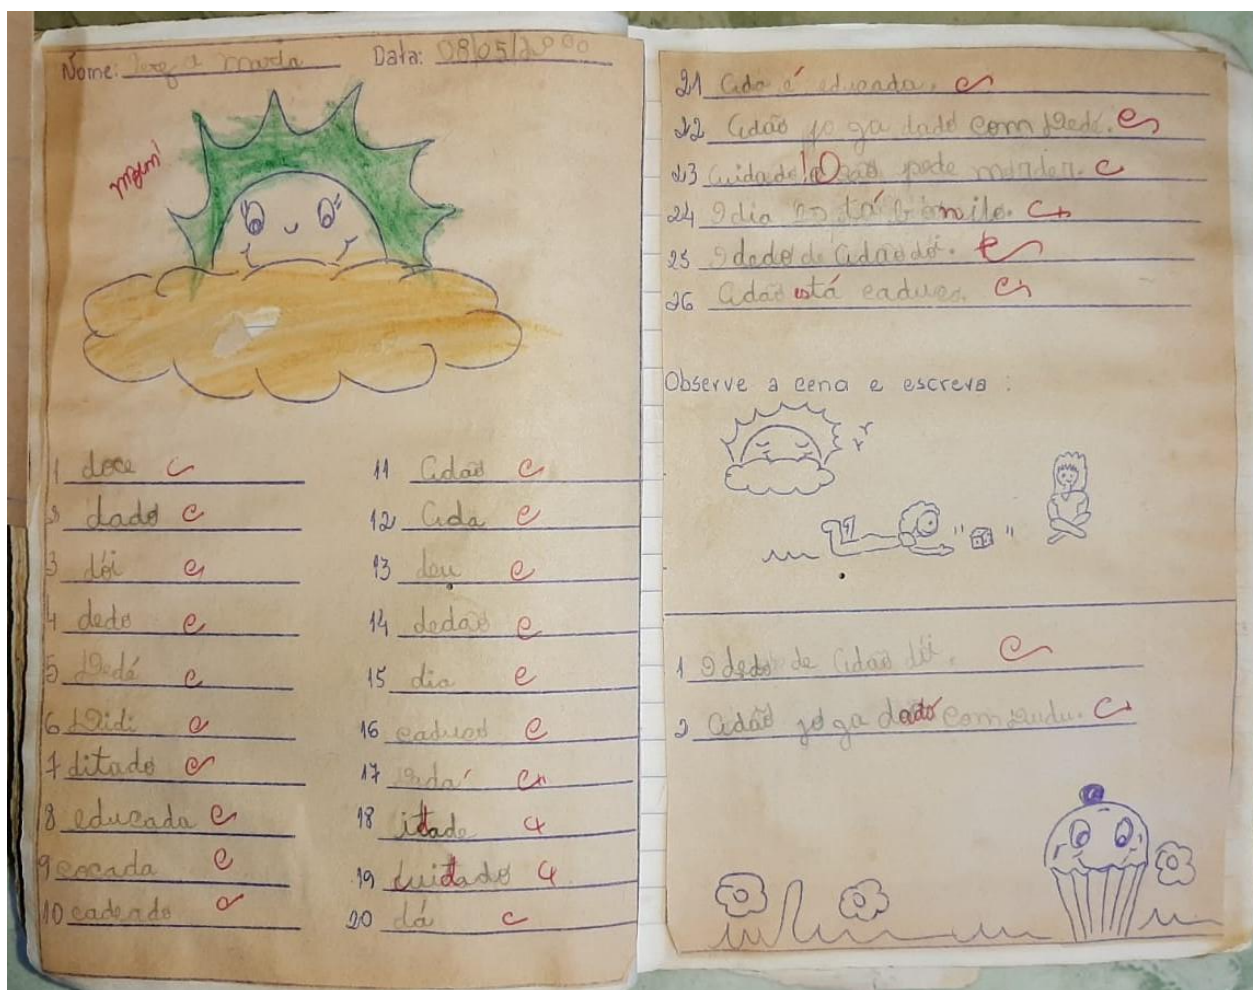 Nome: Maria Data: 08/05/2000
1 doce
2 dado
3 dói
4 dedo
5 Dedé
6 Didi
7 ditado
8 educada
9 cocada
10 cadeado
11 Adão
12 Ada
13 deu
14 dedão
15 dia
16 caduco
17 Dadá
18 itade
19 cuidado
20 dá
21 Ada é educada.
22 Adão jo ga dado com Dedé.
23 Cuidado! O cão pode morder.
24 O dia es tá bonito.
25 O dedo de Adão dói.
26 Adão está caduco.
Observe a cena e escreva:
1 O dedo de Adão dói.
2 Adão jo ga dado com Dudu.